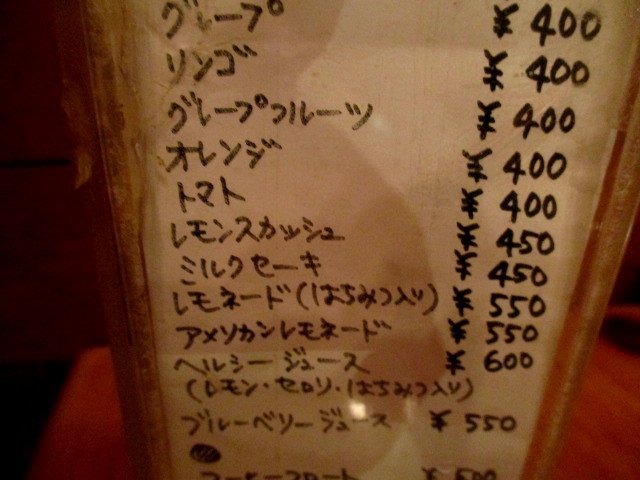 グレープ ¥400
リンゴ ¥400
グレープフルーツ ¥400
オレンジ ¥400
トマト ¥400
レモンスカッシュ ¥450
ミルクセーキ ¥450
レモネード(はちみつ入り) ¥550
アメリカンレモネード ¥550
ヘルシージュース ¥600
(レモン・セロリ・はちみつ入り)
ブルーベリージュース ¥550
コーヒーフロート ¥500